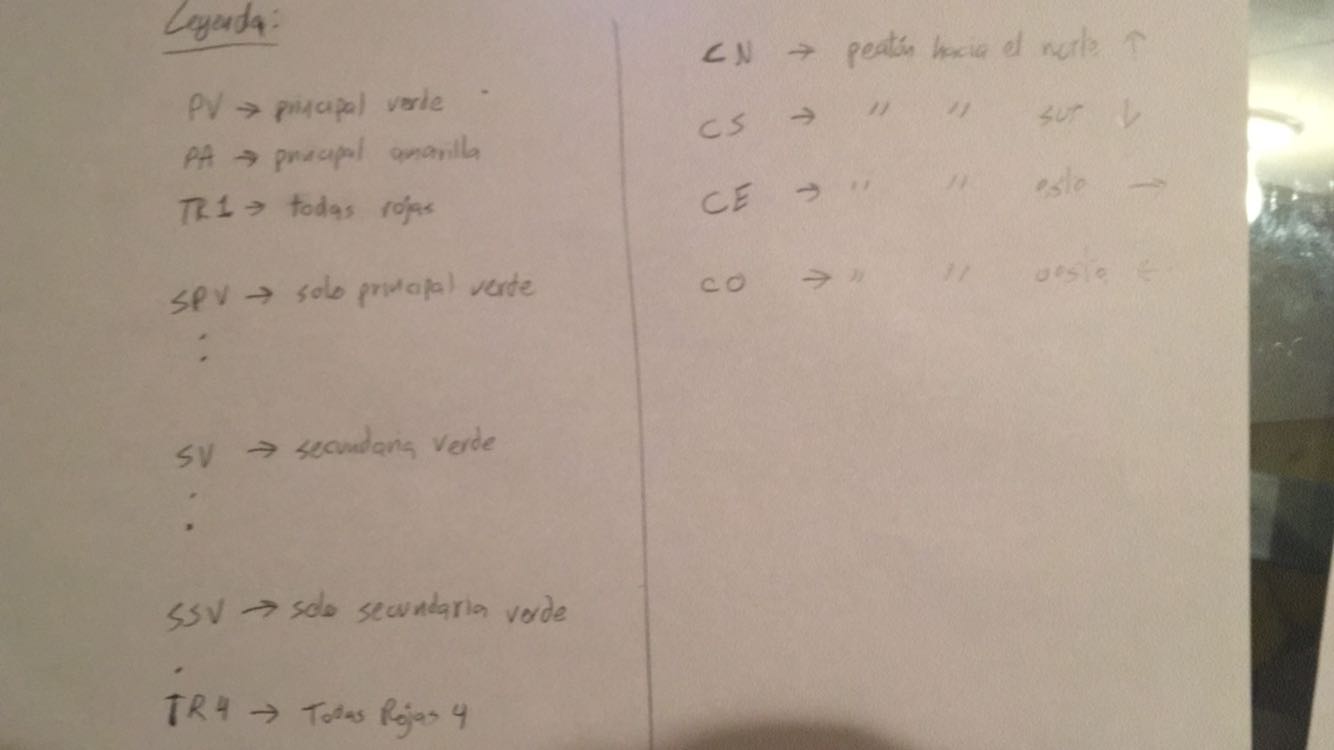 Leyenda:
PV → principal verde
PA → principal amarilla
TR1 → todas rojas
SPV → solo principal verde
:
SV → secundaria verde
:
SSV → solo secundaria verde
.
TR4 → Todas Rojas 4
CN → peatón hacia el norte ↑
CS → " " sur ↓
CE → " " este →
CO → " " oeste ←